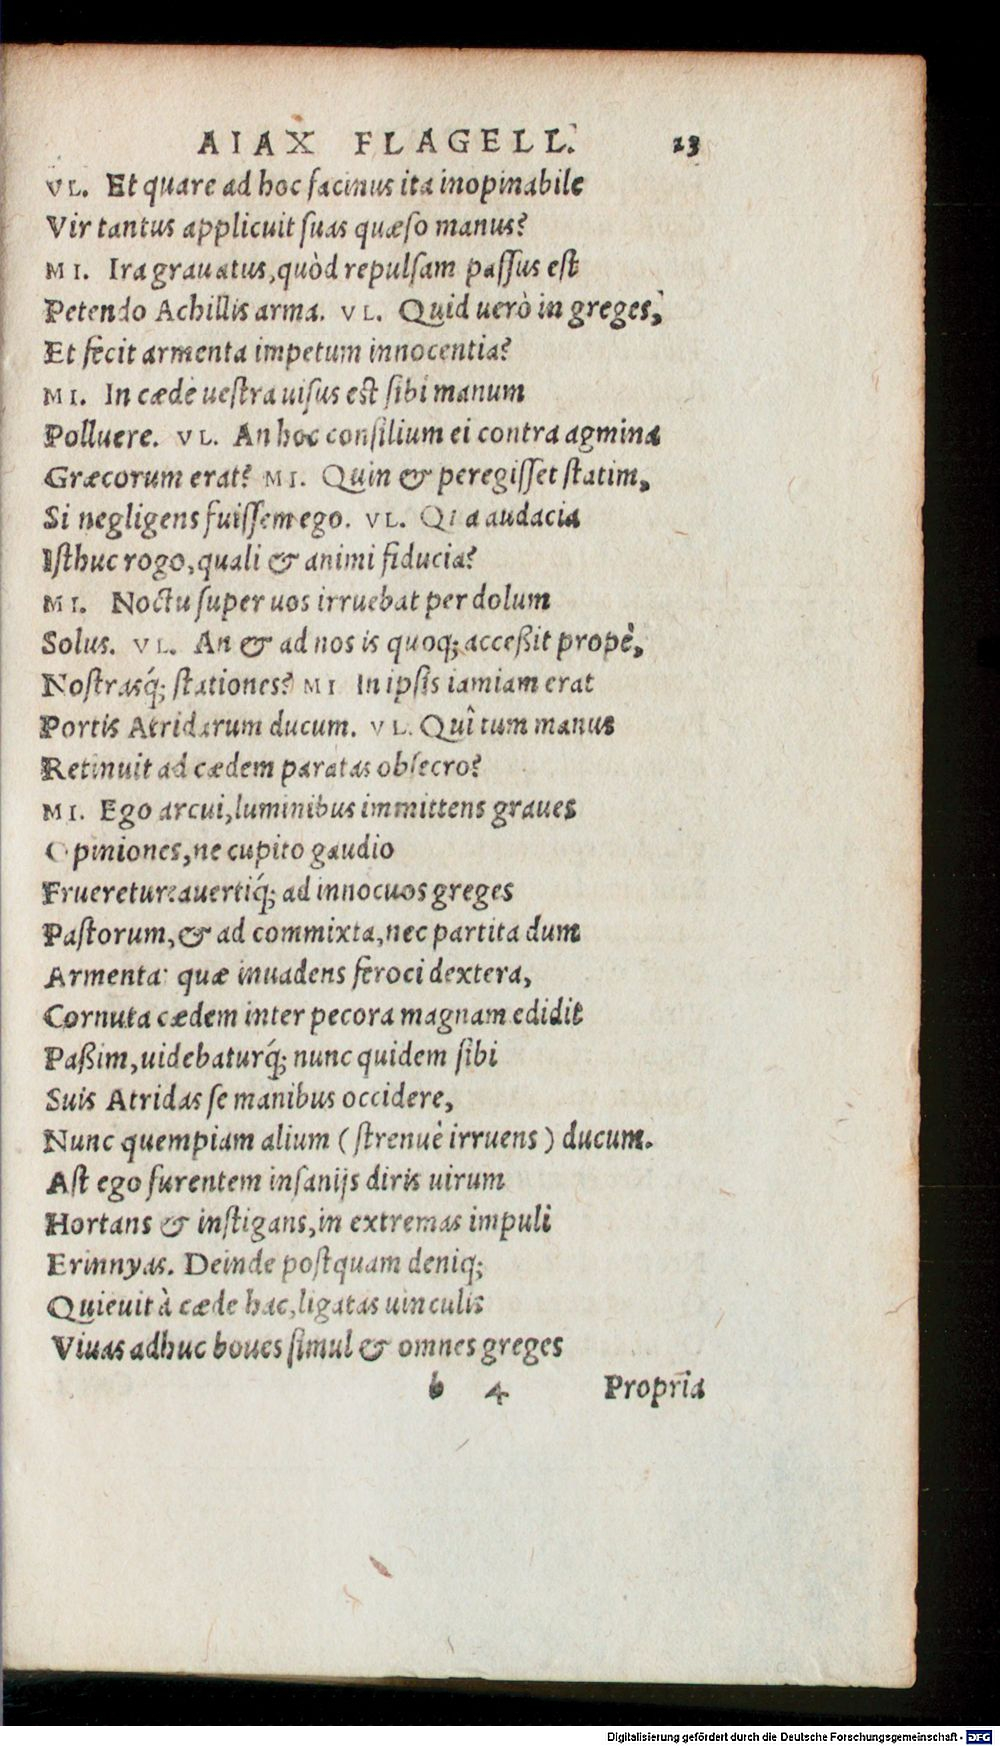 AIAX FLAGELL. 23
VL. Et quare ad hoc facinus ita inopinabile
Vir tantus applicuit suas quæso manus?
MI. Ira grauatus, quòd repulsam passus est
Petendo Achillis arma. VL. Quid uerò in greges,
Et fecit armenta impetum innocentia?
MI. In cæde uestra uisus est sibi manum
Polluere. VL. An hoc consilium ei contra agmina
Græcorum erat? MI. Quin & peregisset statim,
Si negligens fuissem ego. VL. Qua audacia
Isthuc rogo, quali & animi fiducia?
MI. Noctu super uos irruebat per dolum
Solus. VL. An & ad nos is quoq; acceßit propè,
Nostrasq́; stationes? MI In ipsis iamiam erat
Portis Atridarum ducum. VL. Quî tum manus
Retinuit ad cædem paratas obsecro?
MI. Ego arcui, luminibus immittens graues
Opiniones, ne cupito gaudio
Frueretur: auertiq́; ad innocuos greges
Pastorum, & ad commixta, nec partita dum
Armenta: quæ inuadens feroci dextera,
Cornuta cædem inter pecora magnam edidit
Paßim, uidebaturq́; nunc quidem sibi
Suis Atridas se manibus occidere,
Nunc quempiam alium (strenuè irruens) ducum.
Ast ego furentem insanijs diris uirum
Hortans & instigans, in extremas impuli
Erinnyas. Deinde postquam deniq;
Quieuit à cæde hac, ligatas uinculis
Viuas adhuc boues simul & omnes greges
b 4 Propria
Digitalisierung gefördert durch die Deutsche Forschungsgemeinschaft - DFG